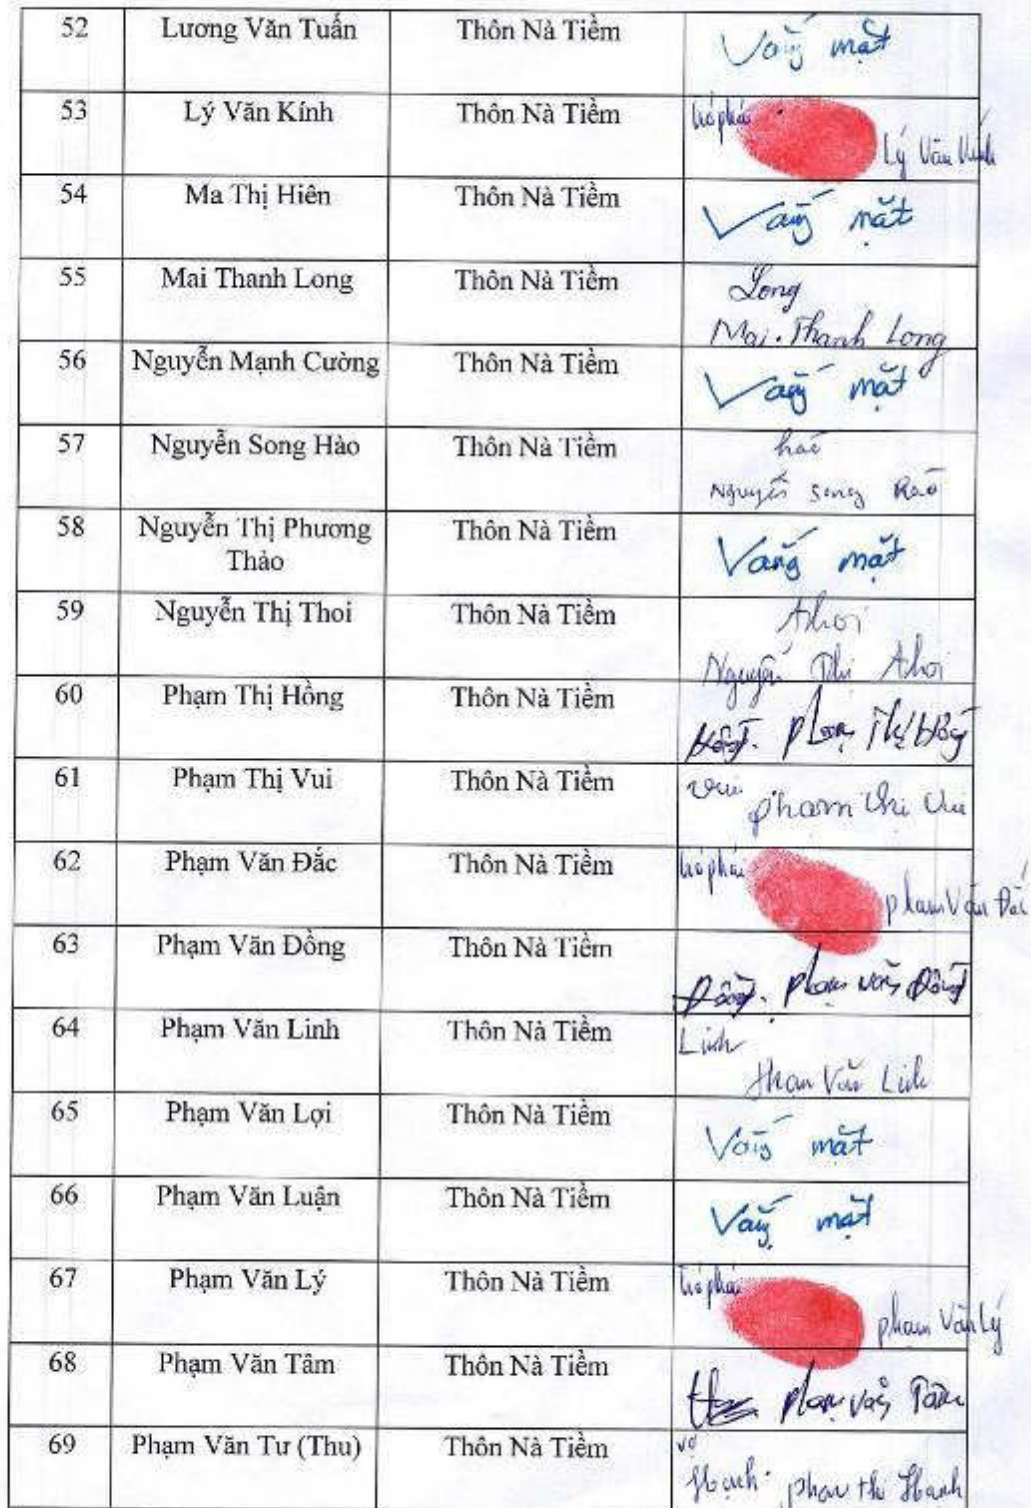 52 Lương Văn Tuấn Thôn Nà Tiềm Vắng mặt
53 Lý Văn Kính Thôn Nà Tiềm trỏ phải Lý Văn Kính
54 Ma Thị Hiên Thôn Nà Tiềm Vắng mặt
55 Mai Thanh Long Thôn Nà Tiềm Long
Mai. Thanh Long
56 Nguyễn Mạnh Cường Thôn Nà Tiềm Vắng mặt
57 Nguyễn Song Hào Thôn Nà Tiềm hào
Nguyễn Song Hào
58 Nguyễn Thị Phương Thôn Nà Tiềm Vắng mặt
Thảo
59 Nguyễn Thị Thoi Thôn Nà Tiềm thoi
Nguyễn Thị thoi
60 Phạm Thị Hồng Thôn Nà Tiềm Hồng. Phạm Thị Hồng
61 Phạm Thị Vui Thôn Nà Tiềm Vui phạm thị Vui
62 Phạm Văn Đắc Thôn Nà Tiềm trỏ phải phạm Văn Đắc
63 Phạm Văn Đồng Thôn Nà Tiềm Đồng. phạm văn Đồng
64 Phạm Văn Linh Thôn Nà Tiềm Linh
Văn Linh
65 Phạm Văn Lợi Thôn Nà Tiềm Vắng mặt
66 Phạm Văn Luận Thôn Nà Tiềm Vắng mặt
67 Phạm Văn Lý Thôn Nà Tiềm trỏ phải phạm Văn Lý
68 Phạm Văn Tâm Thôn Nà Tiềm phạm Văn Tâm
69 Phạm Văn Tư (Thu) Thôn Nà Tiềm vợ
Hạnh. phạm thị Hạnh